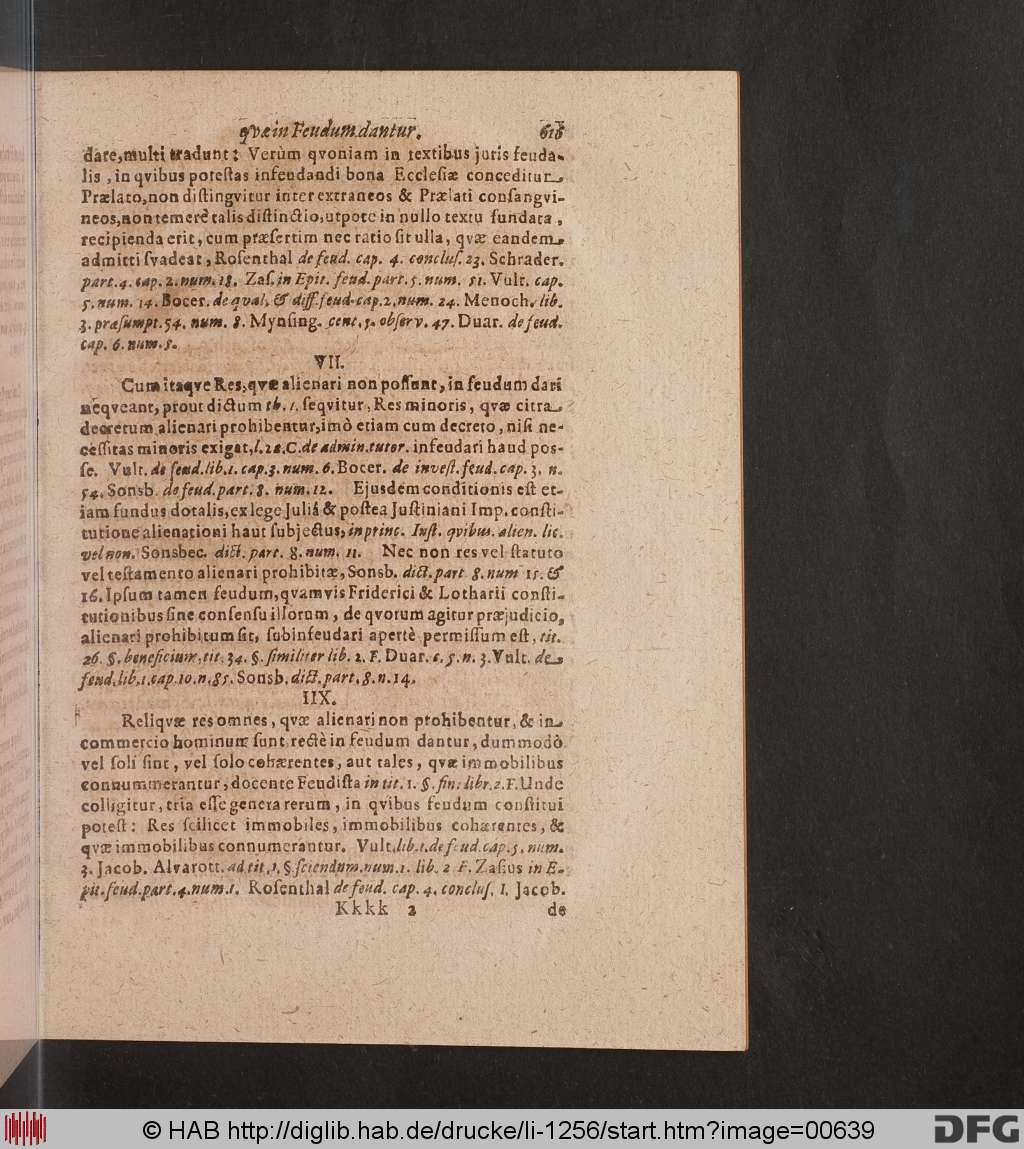 qvæ in Feudum dantur.
date, multi tradunt: Verùm qvoniam in textibus juris feuda-
lis, in qvibus potestas infeudandi bona Ecclesiæ conceditur
Prælato, non distingvitur inter extraneos & Prælati consangvi-
neos, non temerè talis distinctio, utpote in nullo textu fundata,
recipienda erit, cum præsertim nec ratio sit ulla, qvæ eandem
admitti svadeat, Rosenthal de feud. cap. 4. conclus. 23. Schrader.
part. 4. cap. 2. num. 18. Zas. in Epit. feud. part. 5. num. 51. Vult. cap.
5. num. 14. Bocer. de qval. & diff. feud. cap. 2. num. 24. Menoch. lib.
3. præsumpt. 54. num. 8. Mynsing. cent. 5. observ. 47. Duar. de feud.
cap. 6. num. 5.
VII.
Cum itaqve Res, qvæ alienari non possunt, in feudum dari
neqveant, prout dictum th. 1. seqvitur, Res minoris, qvæ citra
decretum alienari prohibentur, imò etiam cum decreto, nisi ne-
cessitas minoris exigat, l. 12. C. de admin. tutor. infeudari haud pos-
se. Vult. de feud. lib. 1. cap. 3. num. 6. Bocer. de invest. feud. cap. 3. n.
54. Sonsb. de feud. part. 8. num. 12. Ejusdem conditionis est et-
iam fundus dotalis, ex lege Juliâ & postea Justiniani Imp. consti-
tutione alienationi haut subjectus, in princ. Inst. qvibus. alien. lic.
vel non. Sonsbec. dict. part. 8. num. 11. Nec non res vel statuto
vel testamento alienari prohibitæ, Sonsb. dict. part 8. num 15. &
16. Ipsum tamen feudum, qvamvis Friderici & Lotharii consti-
tutionibus sine consensu illorum, de qvorum agitur præjudicio,
alienari prohibitum sit, subinfeudari apertè permissum est, tit.
26. §. beneficium, tit. 34. §. similiter lib. 2. F. Duar. c. 5. n. 3. Vult. de
feud. lib. 1. cap. 10. n. 85. Sonsb. dict. part. 8. n. 14.
IIX.
Reliqvæ res omnes, qvæ alienari non prohibentur, & in
commercio hominum sunt rectè in feudum dantur, dummodò
vel soli sint, vel solo cohærentes, aut tales, qvæ immobilibus
connummerantur, docente Feudista in tit. 1. §. fin. libr. 2. F. Unde
colligitur, tria esse genera rerum, in qvibus feudum constitui
potest: Res scilicet immobiles, immobilibus cohærentes, &
qvæ immobilibus connumerantur. Vult. lib. 1. de feud. cap. 5. num.
3. Jacob. Alvarott. ad tit. 1. § sciendum. num. 1. lib. 2 F. Zasius in E-
pit. feud. part. 4. num. 1. Rosenthal de feud. cap. 4. conclus. 1. Jacob.
Kkkk 2 de
© HAB http://diglib.hab.de/drucke/li-1256/start.htm?image=00639
DFG